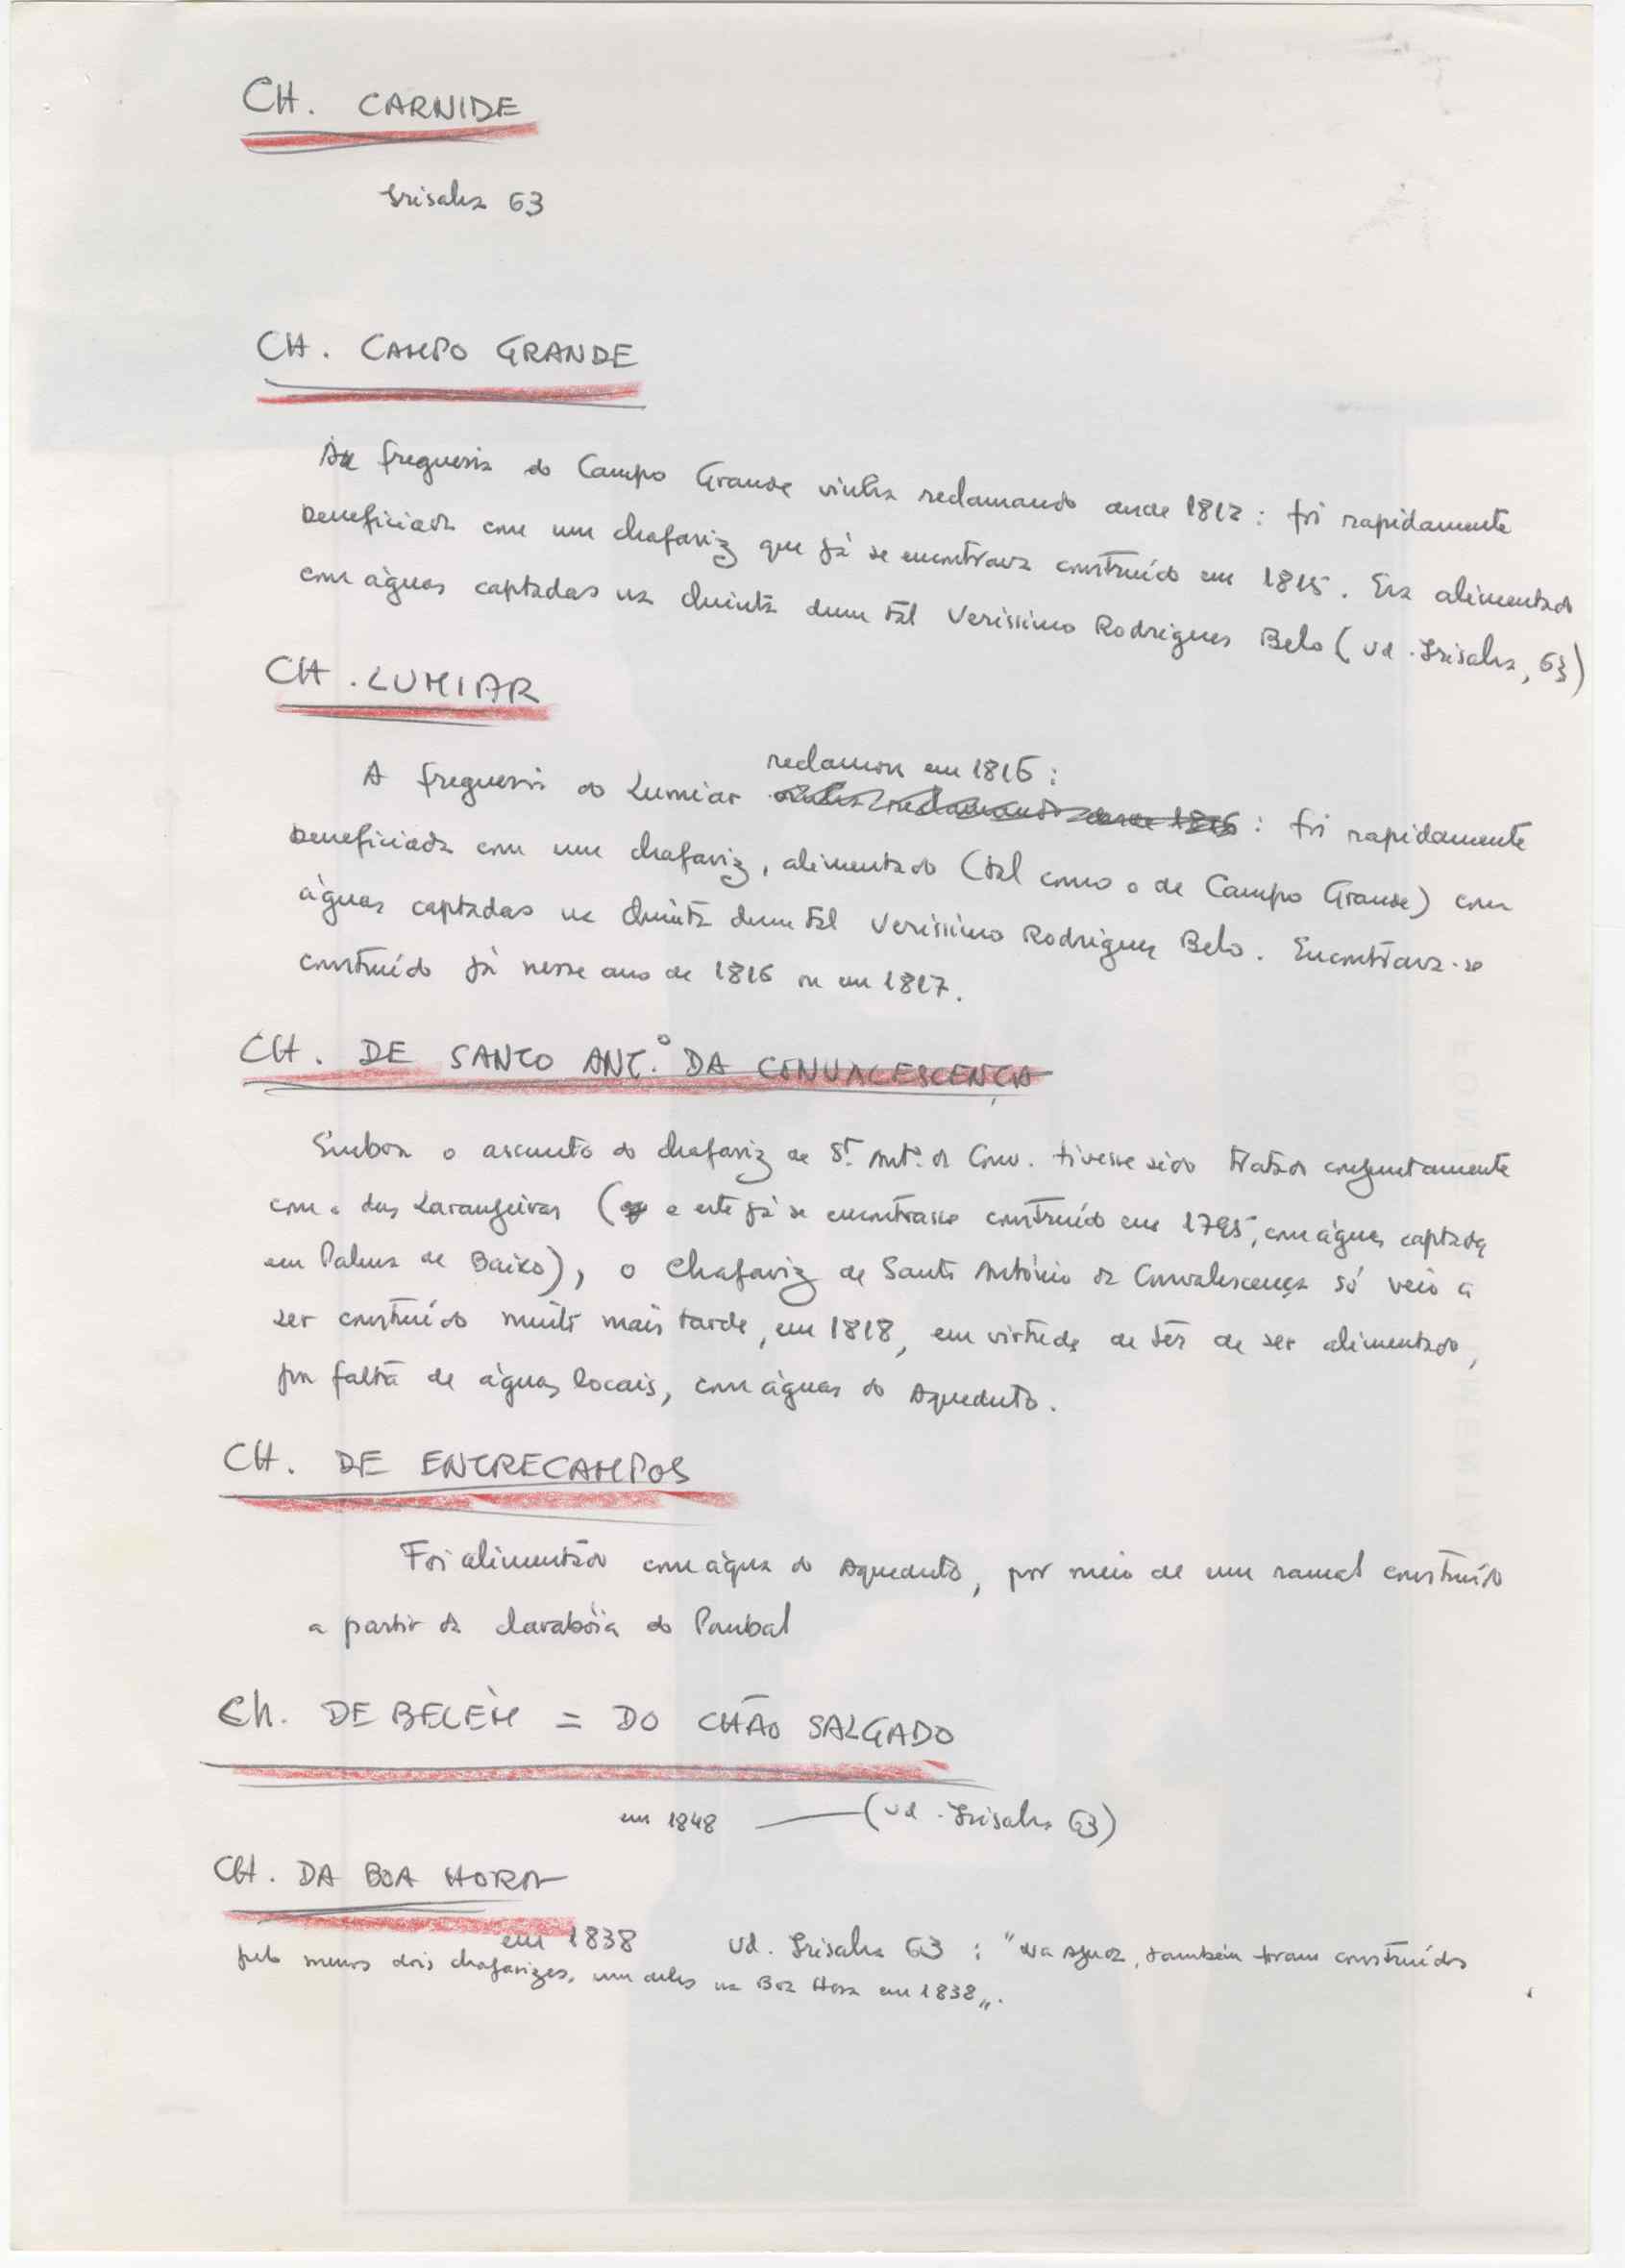 CH. CARNIDE
Grisalva 63
CH. CAMPO GRANDE
A freguesia do Campo Grande vinha reclamando desde 1812: foi rapidamente
beneficiada com um chafariz que já se encontrava construído em 1815. Era alimentado
com águas captadas na Quinta dum tal Verissimo Rodrigues Belo (vd. Grisalva, 63)
CH. LUMIAR
reclamou em 1816:
A freguesia do Lumiar : foi rapidamente
beneficiada com um chafariz, alimentado (tal como o de Campo Grande) com
águas captadas na Quinta dum tal Verissimo Rodrigues Belo. Encontrava-se
construído já nesse ano de 1816 ou em 1817.
CH. DE SANTO ANT.º DA CONVALESCENÇA
Embora o assunto do chafariz de St. Antº. da Conv. tivesse sido tratado conjuntamente
com o das Laranjeiras (e este já se encontrasse construído em 1795, com águas captadas
em Palma de Baixo), o chafariz de Santo António da Convalescença só veio a
ser construído muito mais tarde, em 1818, em virtude de ter de ser alimentado,
por falta de águas locais, com águas do Aqueduto.
CH. DE ENTRECAMPOS
Foi alimentado com água do Aqueduto, por meio de um ramal construído
a partir da clarabóia do Pombal
Ch. DE BELÉM = DO CHÃO SALGADO
em 1848 (vd. Grisalva 63)
CH. DA BOA HORA
em 1838 vd. Grisalva 63 : "Na Ajuda, também foram construídos
pelo menos dois chafarizes, um deles na Boa Hora em 1838".